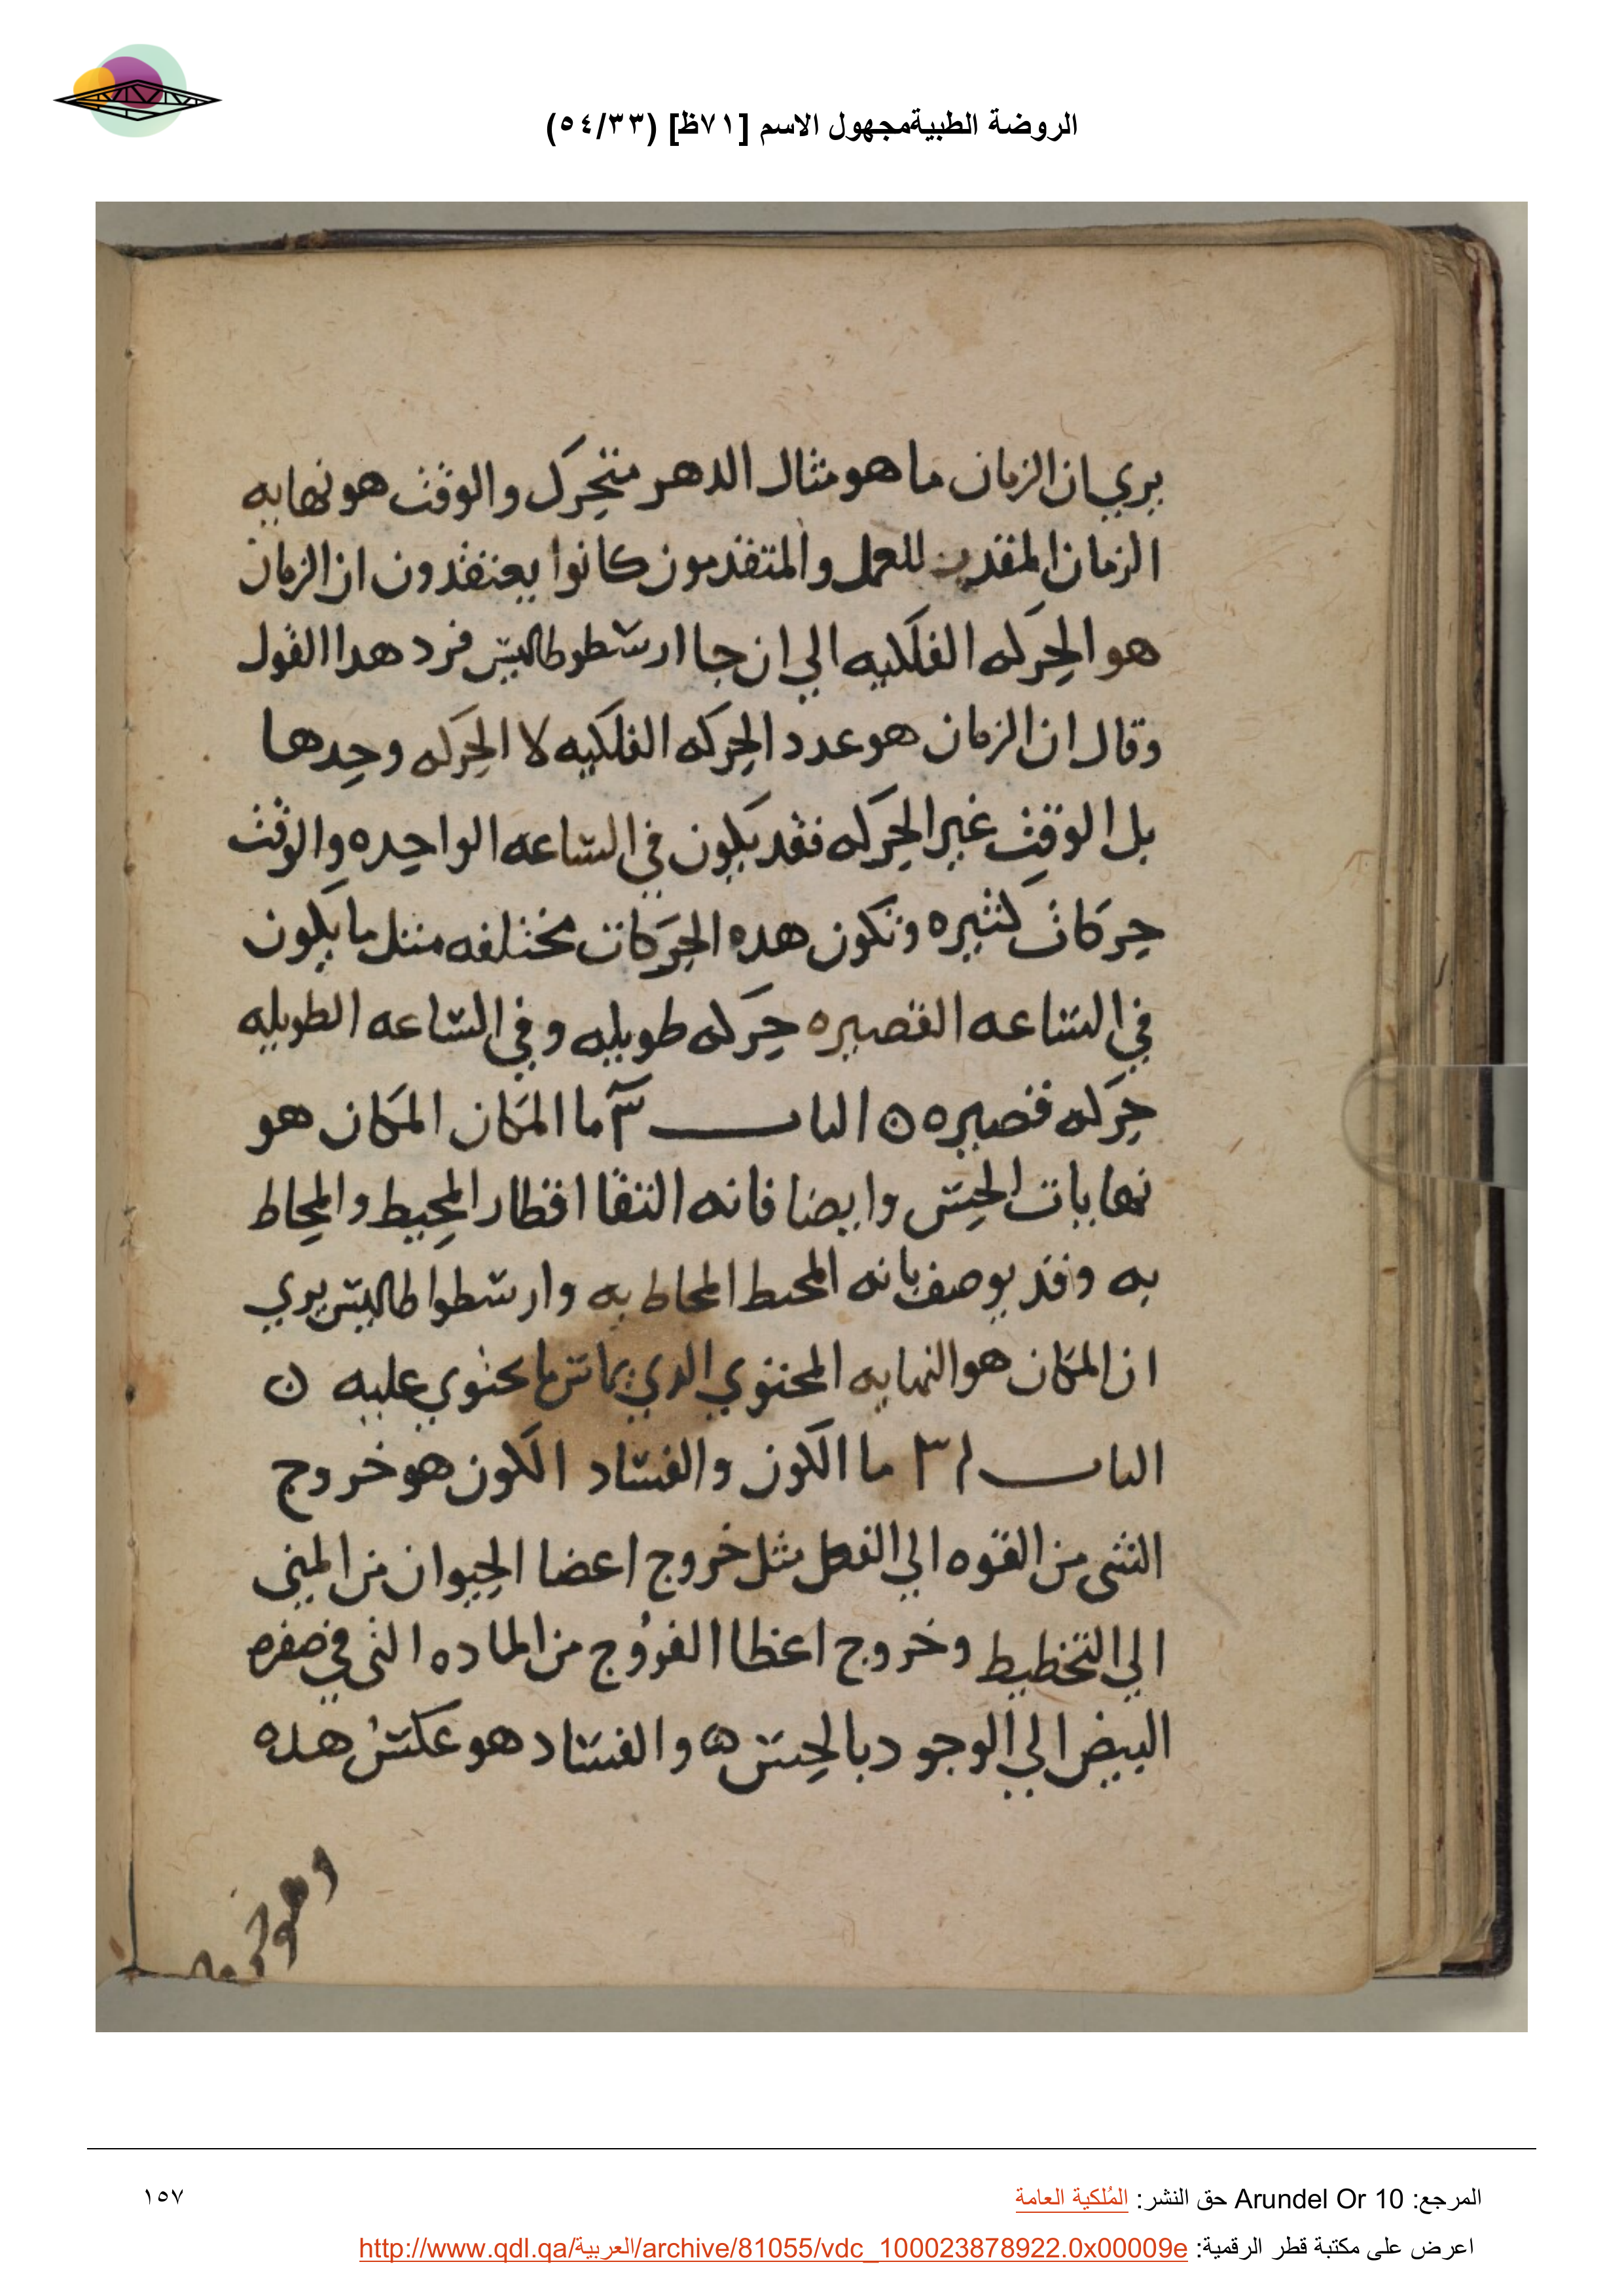 الروضة الطبيةمجهول الاسم [٧١ظ] (٥٤/٣٣)
يري ان الزمان ما هو مثال الدهر متحرك والوقت هو نهايه
الزمان المقدر للعمل والمتقدمون كانوا يعتقدون ان الزمان
هو الحركه الفلكيه الي ان جا ارسطوطاليس فرد هدا القول
وقال ان الزمان هو عدد الحركه الفلكيه لا الحركه وحدها
بل الوقت غير الحركه فقد يكون في الساعه الواحده والوقت
حركات كثيره وتكون هده الحركات مختلفه مثل ما يكون
في الساعه القصيره حركه طويله وفي الساعه الطويله
حركه قصيره ن الباب ٣٠ ما المكان المكان هو
نهايات الجس وايضا فانه التقا اقطار المحيط والمحاط
به وقد يوصف بانه المحيط المحاط به وارسطواطاليس يري
ان المكان هو النهايه المحتوي الدي يماس ما يحتوي عليه ن
الباب ٣١ ما الكون والفساد الكون هو خروج
الشى من القوه الي الفعل مثل خروج اعضا الحيوان من المني
الي التخطيط وخروج اعظا الفروج من الماده التى في صفره
البيض الي الوجود بالحس ه والفساد هو عكس هده
وهو
المرجع: Arundel Or 10 حق النشر: المُلكية العامة
١٥٧
اعرض على مكتبة قطر الرقمية: http://www.qdl.qa/العربية/archive/81055/vdc_100023878922.0x00009e